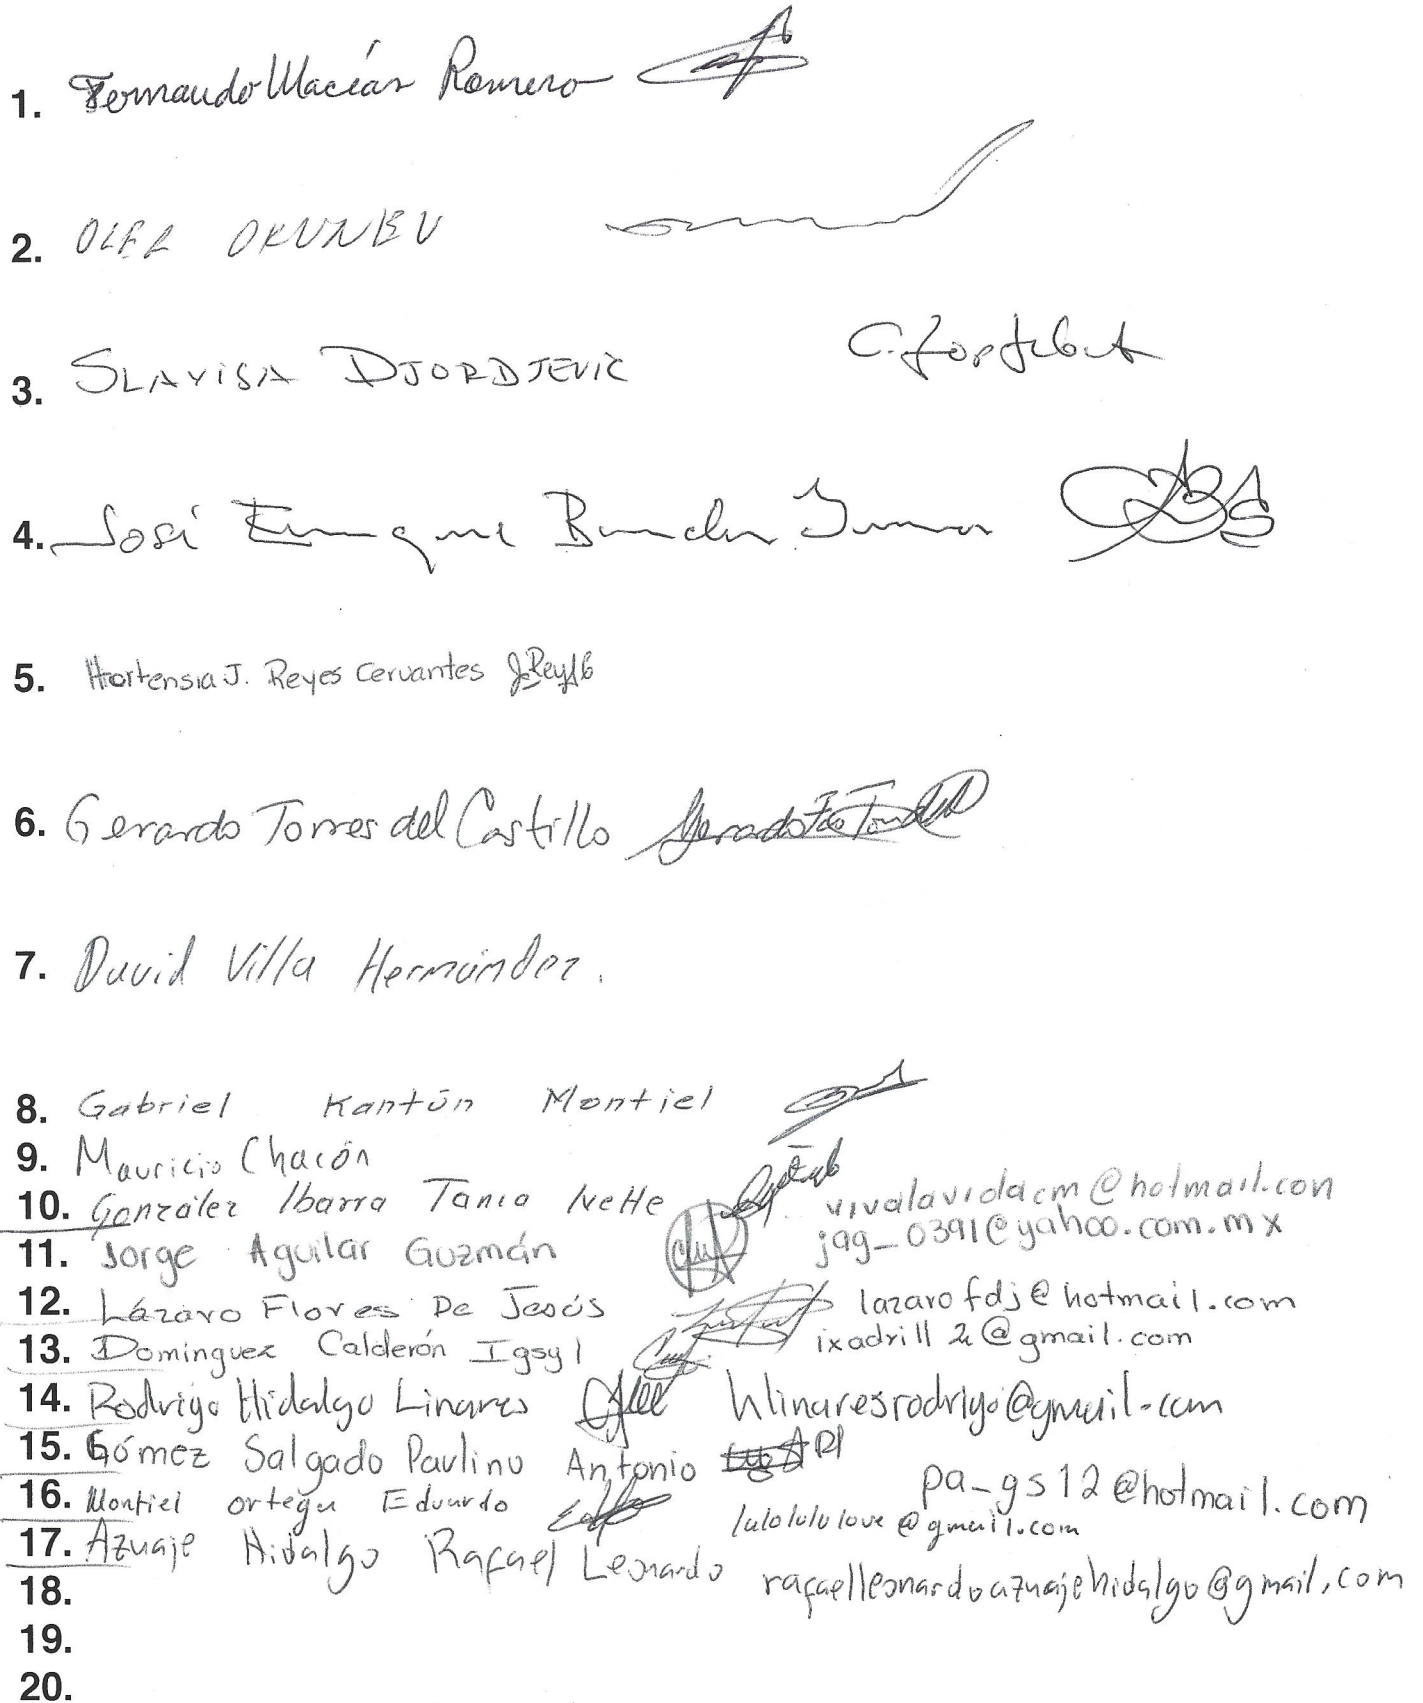 1. Fernando Macías Romero
2. OLEG OKUNEV
3. SLAVISA DJORDJEVIC
4. José Enrique
5. Hortensia J. Reyes Cervantes
6. Gerardo Torres del Castillo
7. David Villa Hernández.
8. Gabriel Kantún Montiel
9. Mauricio Chacón
10. González Ibarra Tania Ivette vivalavidacm@hotmail.com
11. Jorge Aguilar Guzmán jag_0391@yahoo.com.mx
12. Lázaro Flores De Jesús lazarofdj@hotmail.com
13. Dominguez Calderón Igsyl
14. Rodrigo Hidalgo Linares hlinaresrodrigo@gmail.com
15. Gómez Salgado Paulino Antonio pa_gs12@hotmail.com
16. Montiel ortega Eduardo lulolululove@gmail.com
17. Azuaje Hidalgo Rafael Leonardo rafaelleonardoazuajehidalgo@gmail.com
18.
19.
20.